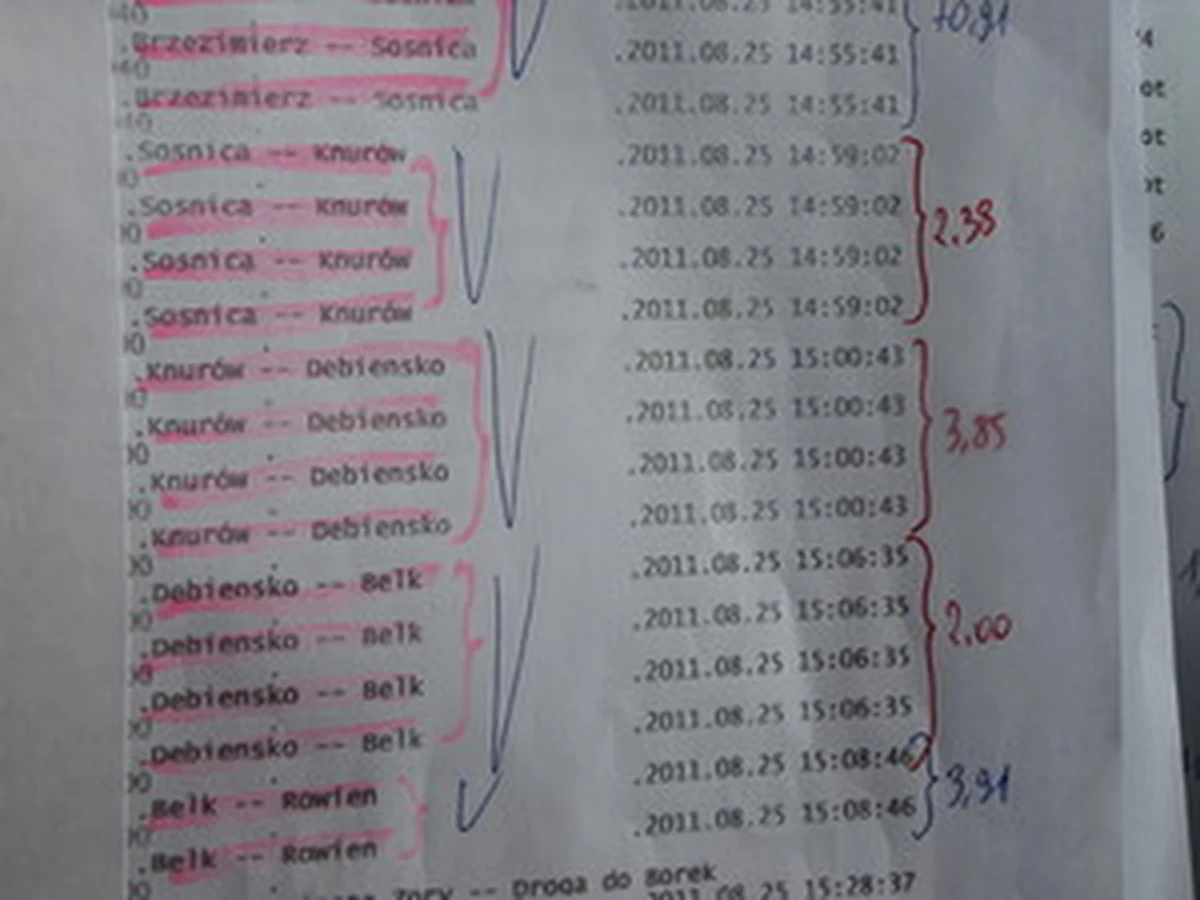 .2011.08.25 14:55:41
40
.Brzezimierz -- Sosnica .2011.08.25 14:55:41 10,91
40
.Brzezimierz -- Sosnica .2011.08.25 14:55:41
40
.Sosnica -- Knurów .2011.08.25 14:59:02
.Sosnica -- Knurów .2011.08.25 14:59:02 2,38
.Sosnica -- Knurów .2011.08.25 14:59:02
.Sosnica -- Knurów .2011.08.25 14:59:02
.Knurów -- Debiensko .2011.08.25 15:00:43
.Knurów -- Debiensko .2011.08.25 15:00:43 3,85
.Knurów -- Debiensko .2011.08.25 15:00:43
.Knurów -- Debiensko .2011.08.25 15:00:43
.Debiensko -- Belk .2011.08.25 15:06:35
.Debiensko -- Belk .2011.08.25 15:06:35 2,00
.Debiensko -- Belk .2011.08.25 15:06:35
.Debiensko -- Belk .2011.08.25 15:06:35
.Belk -- Rowien .2011.08.25 15:08:46 3,91
.Belk -- Rowien .2011.08.25 15:08:46
Zory -- Droga do Borek
2011.08.25 15:28:37